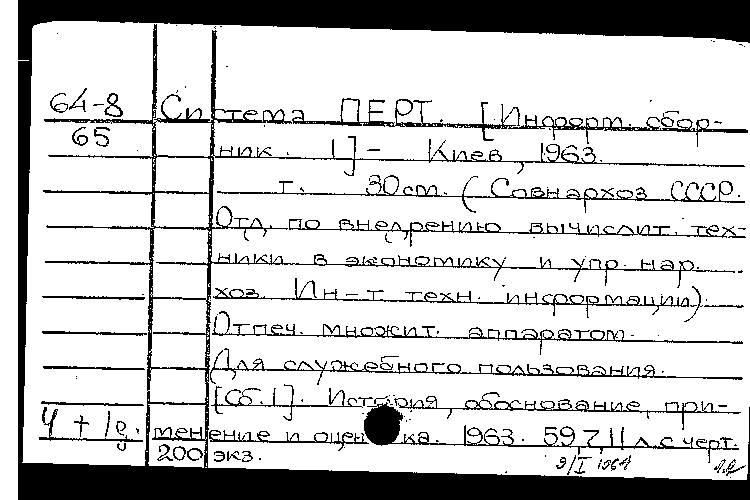 64-8 Система ПЕРТ. [Информ. сбор-
65 ник. 1] - Киев, 1963.
т. 30 см. (Совнархоз СССР.
Отд. по внедрению вычислит. тех-
ники в экономику и упр. нар.
хоз. Ин-т техн. информации).
Отпеч. множит. аппаратом.
Для служебного пользования.
[Сб. 1]. История, обоснование, при-
4 + 1д. менение и оценка. 1963. 59,7,11 л. с черт.
200 экз. 9/I 1964